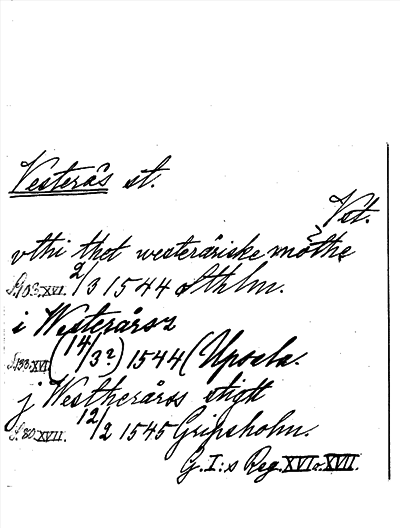 Vesterås st.
Vst.
vthi thet westeråriske mőthe
S. 103. XVI. 2/3 1544 Sthlm.
i Westerårsz
S. 193. XVI (14/3?) 1544 (Upsala.
j Westherårss stigtt
S. 80. XVII. 12/2 1545 Gripsholm.
G. I:s Reg. XVI o. XVII.